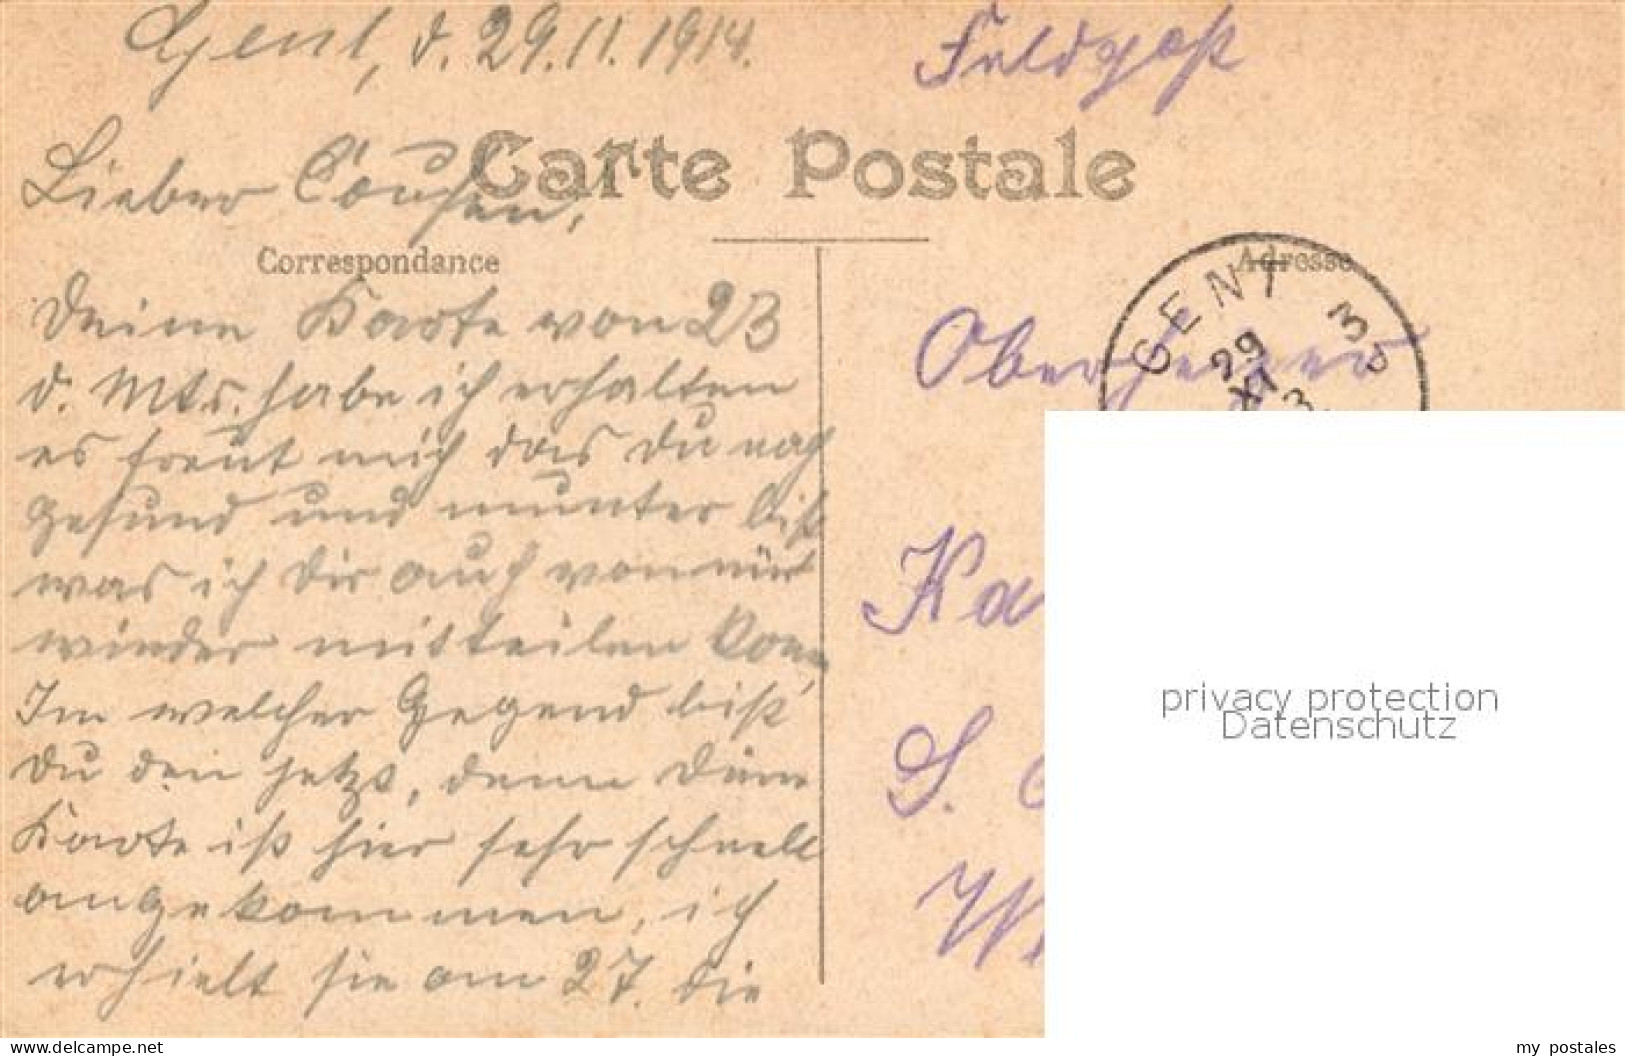 Gent, d. 29.11.1914.
Feldpost
Carte Postale
Lieber Cousen,
Correspondance
Adresse
GENT
29
XI
Deine Karte von 23
d. Mts. habe ich erhalten
es freut mich das du noch
gesund und munter bist
was ich dir auch von mir
wieder mitteilen kann
Im welcher Gegend bist
du den jetzt, denn deine
Karte ist hier sehr schnell
angekommen, ich
erhielt sie am 27. die
Ka
S.
privacy protection
Datenschutz
www.delcampe.net
my postales